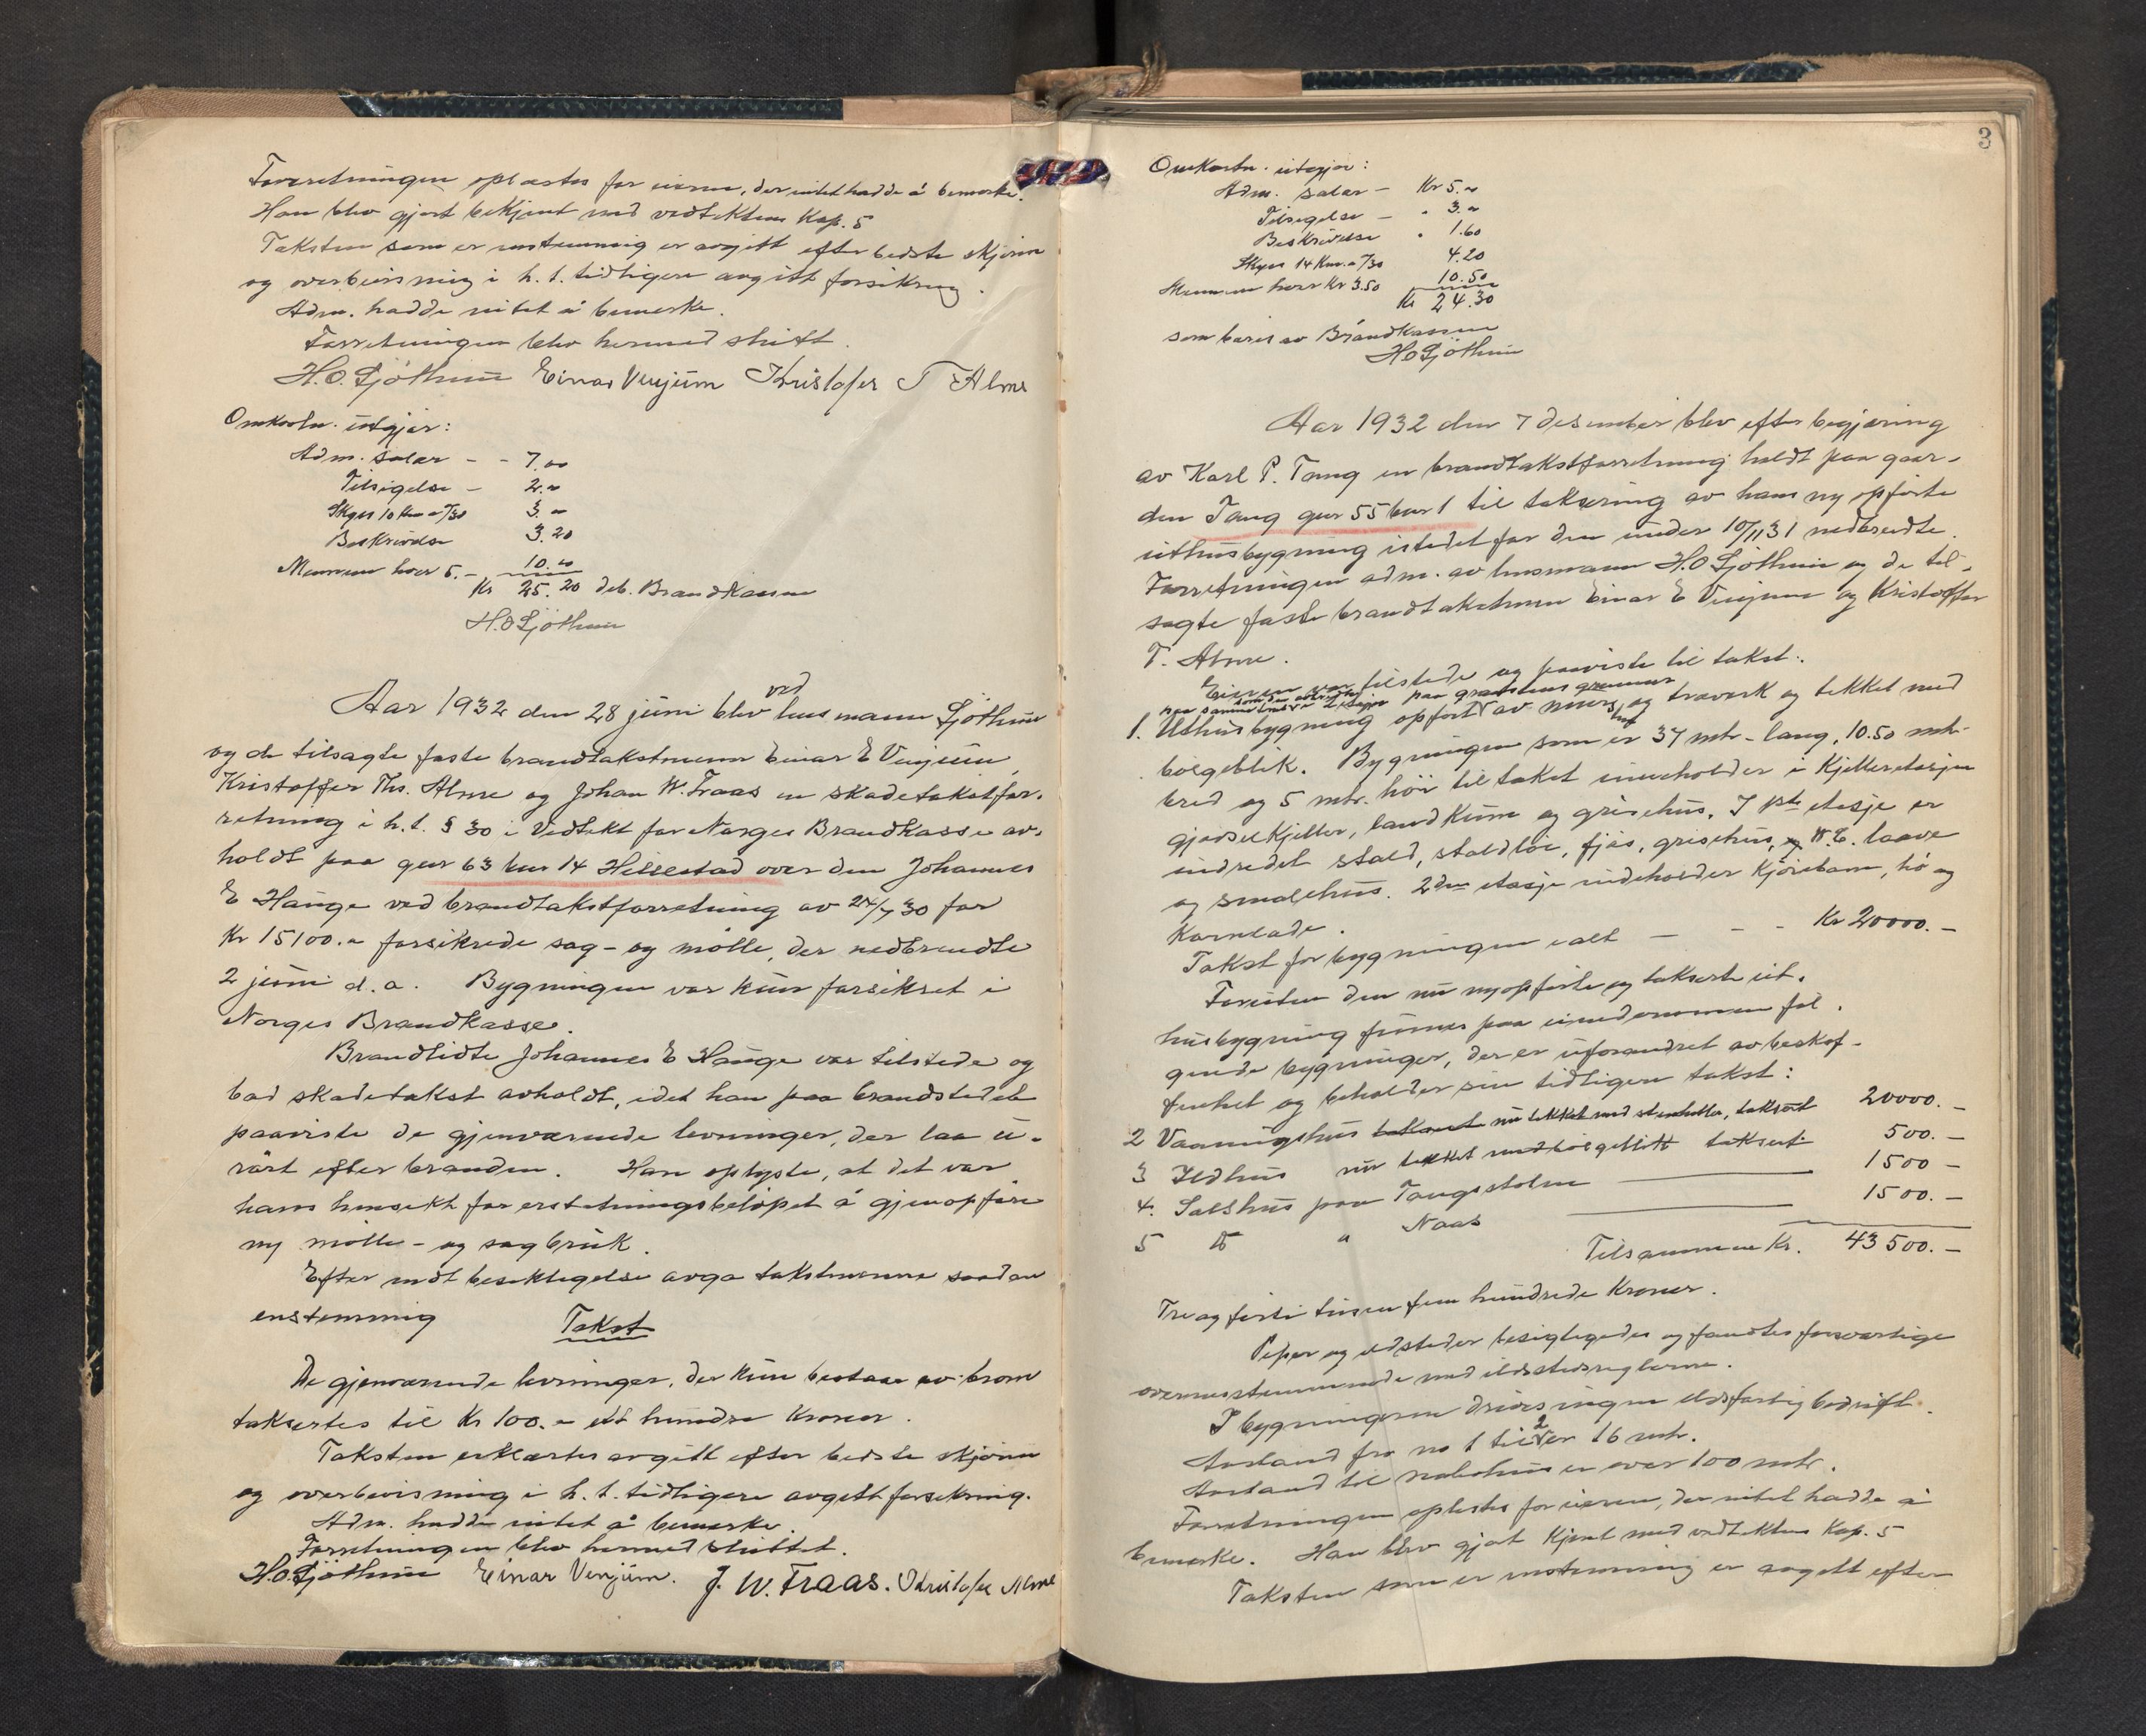 Forretningen oplæstes for eieren, der intet hadde å bemerke.
Han blev gjort bekjent med vedtektens Kap. 5
Taksten som er enstemmig er avgitt efter bedste skjönn
og overbevisning i h. t. tidligere avgitt forsikring.
Adm. hadde intet å bemerke.
Forretningen blev hermed sluttt.
H.O. Sjöthun Einar Venjum Kristofer T Alme
Omkostn. utgjör:
Adm. salær - - 7.00
Tilsigelse - 2.00
Skyss 10 km a 7/30 3.00
Beskrivelse 3.20
Mennene hver 5.- 10.00
Kr 25.20 deb. Brandkassen
H.O Sjöthun
Aar 1932 den 28 juni blev ved lensmann Sjöthun
og de tilsagte faste brandtakstmenn Einar E Venjum,
Kristoffer Ths. Alme og Johan W. Fraas en skadetakstfor-
retning i h.t. § 30 i Vedtekt for Norges Brandkasse av-
holdt paa gnr 63 bnr 14 Hillestad over den Johannes
E Hauge ved brandtakstforretning av 24/7 30 for
Kr 15100.- forsikrede sag- og mölle, der nedbrendte
2 juni d.a. Bygningen var kun forsikret i
Norges Brandkasse.
Brandlidte Johannes E Hauge var tilstede og
bad skadetakst avholdt, idet han paa brandstedet
paaviste de gjenværende levninger, der laa u-
rört efter branden. Han oplyste, at det var
hans hensikt for erstatningsbelöpet å gjenopföre
ny mölle- og sagbruk.
Efter endt besiktigelse avga takstmennene saadan
enstemmig Takst
De gjenværende levninger, der kun bestaar av brom
taksertes til Kr 100.- ett hundre Kroner.
Taksten erklærtes avgitt efter bedste skjönn
og overbevisning i h. t. tidligere avgitt forsikring.
Adm. hadde intet å bemerke.
Forretningen blev hermed sluttet.
H.O. Sjöthun Einar Venjum. J. W. Fraas. Kristofer Alme
3
Omkostn. utgjör:
Adm. salær - Kr 5.00
Tilsigelse - " 3.00
Beskrivelse " 1.60
Skyss 14 Km. a 7/30 4.20
Mennene hver Kr 3.50 10.50
Kr 24.30
som bæres av Brandkassen
H.O Sjöthun
Aar 1932 den 7 desember blev efter begjæring
av Karl P. Tang en brandtakstforretning holdt paa gaar-
den Tang gnr 55 bnr 1 til taksering av hans ny opförte
uthusbygning istedet for den under 10/11 31 nedbrendte.
Forretningen adm. av lensmann H.O Sjöthun og de til-
sagte faste brandtakstmenn Einar E Venjum og Kristoffer
T. Alme.
Eieren var tilstede og paaviste til takst:
paa samme paa gråstens grunnmur
1. Uthusbygning opfört av mur og treverk og tekket med
bölgeblik. Bygningen som er 37 mtr. lang, 10.50 mtr.
bred og 5 mtr. höi til taket inneholder i Kjelleretasjen
gjödselkjeller, landkum og grisehus. I 1ste etasje er
indredet stald, staldlöe, fjös, grisehus, W.C. laave
og smalehus. 2den etasje indeholder Kjörebane, hö og
Kornlade.
Takst for bygningen ialt - - - Kr 20000.-
Foruten den nu nyopförte og takserte ut-
husbygning finnes paa eiendommen föl-
gende bygninger, der er uforandret av beskaf-
fenhet og beholder sin tidligere takst:
2 Vaaningshus nu tekket med stenheller, taksert 20000.-
3 Ildhus nu tekket med bölgeblikk taksert 500.-
4. Salshus paa Tangestölen 1500 -
5 do " Naas 1500.-
Tilsammen Kr. 43500.-
Tre og förti tusen fem hundrede Kroner.
Piper og ildsteder besigtigedes og fandtes forsvarlige
overensstemmende med ildstedsreglerne.
I bygningerne drives ingen ildsfarlig bedrift.
Avstand fra no 1 til 2 er 16 mtr.
Avstand til nabohus er over 100 mtr.
Forretningen oplestes for eieren, der intet hadde å
bemerke. Han blev gjort kjent med vedtektens Kap. 5
Taksten som er enstemmig er avgitt efter